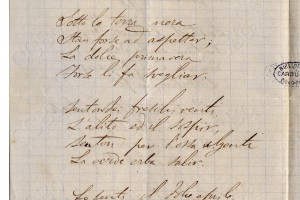 Sotto la terra nera
Stan forse ad aspettar;
La dolce primavera
Forse li fa svegliar.
freschi venti
L'alito ed il sospir,
senton per l'ossa algenti
La verde erba salir.
il sole aprile